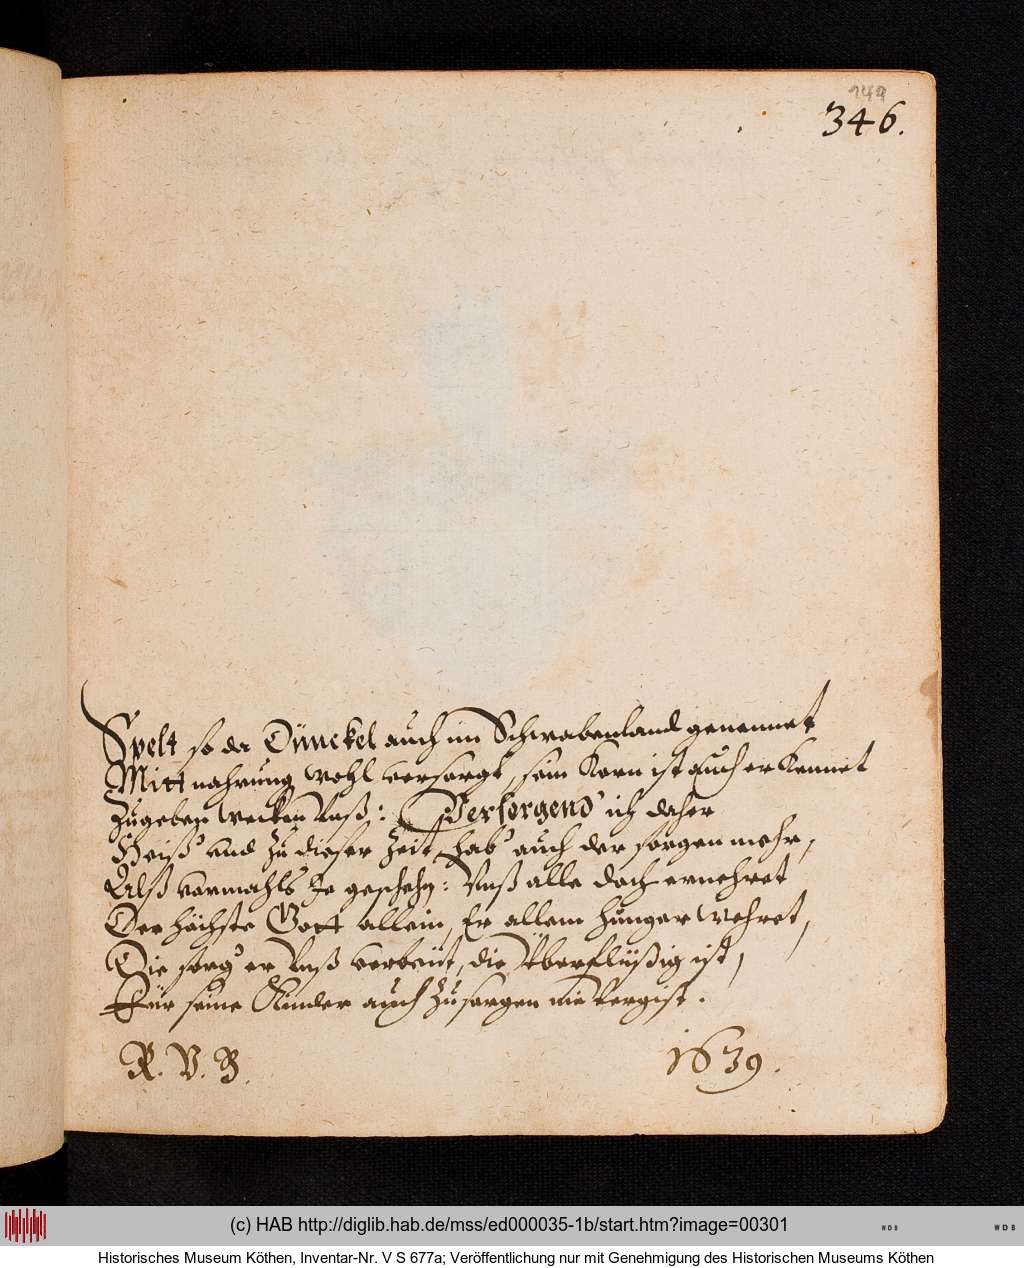 144
346.
Spelt so da Dünckel auch im Schwabenland genennet
Mitt nahrung wohl versorgt, sein Korn ist auch er kennet
Zugeben wecken Unß: Versorgend' ich daher
Heiß' und zu dieser Zeit hab' auch der sorgen mehr,
Alß vormahls Je geschehn: Unß alle doch ernehret
Der höchste Gott allein, Er allem hunger wehret,
Die sorg' er Unß verbeüt, die Überflüßig ist,
Für seine Kinder auch Zusorgen nie vergist.
R. V. B.
1639.
(c) HAB http://diglib.hab.de/mss/ed000035-1b/start.htm?image=00301
WDB
WDB
Historisches Museum Köthen, Inventar-Nr. V S 677a; Veröffentlichung nur mit Genehmigung des Historischen Museums Köthen